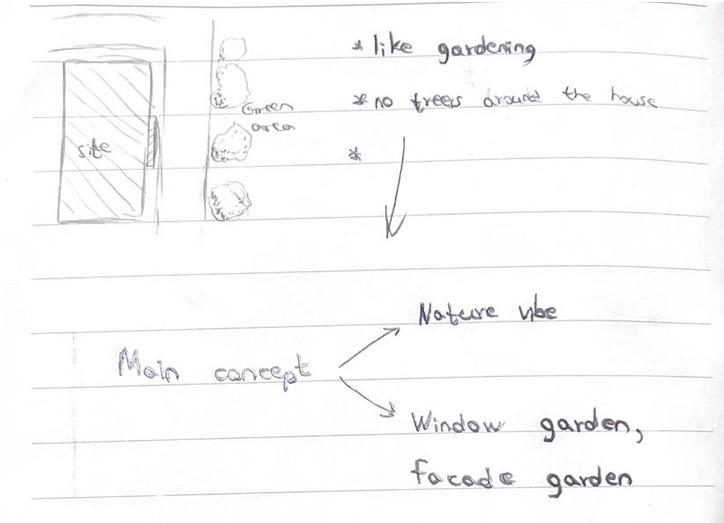 * like gardening
* no trees around the house
*
Green
area
site
Nature vibe
Main concept
Window garden,
facade garden